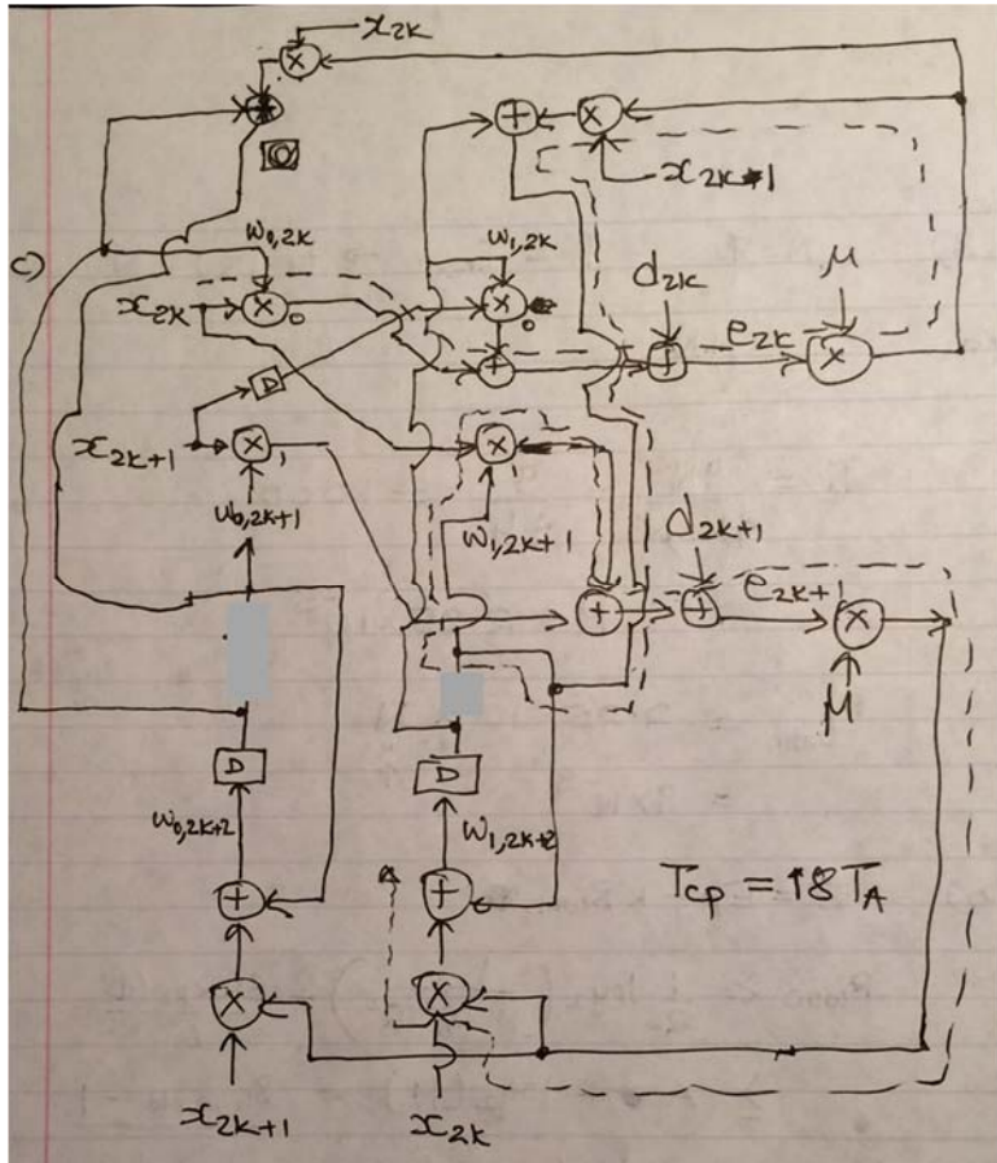 x2k
x2k-1
w0,2k
w1,2k
d2k
μ
c)
x2k
e2k
D
x2k+1
w0,2k+1
w1,2k+1
d2k+1
e2k+1
μ
D
D
w0,2k+2
w1,2k+2
Tcp = 18 TA
x2k+1
x2k